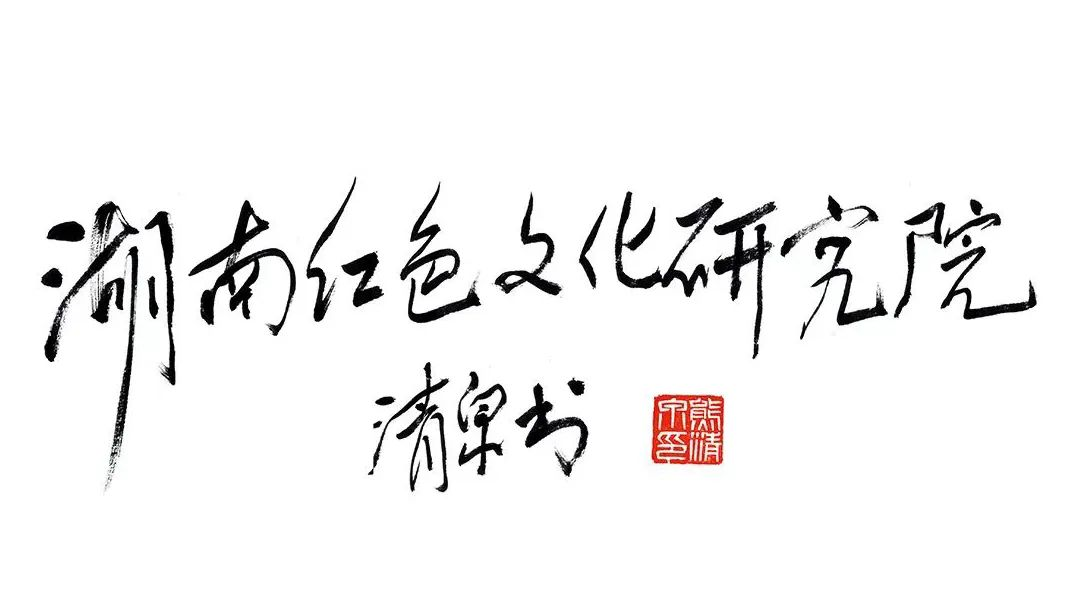 湖南红色文化研究院
清泉书
熊清泉印